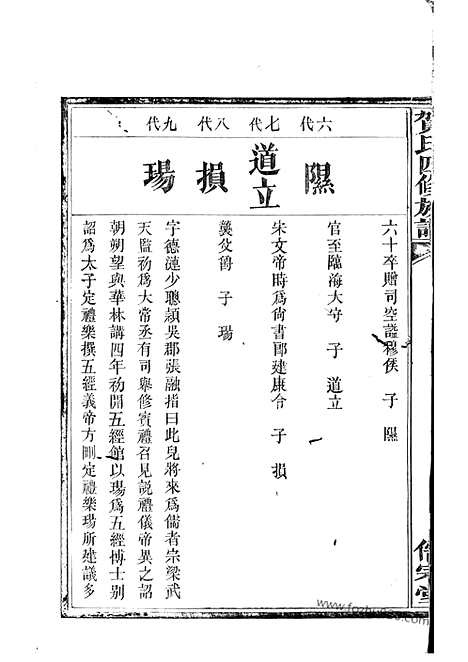 賀氏四修族譜
六十卒贈司空諡穆侯 子 隰
六代
隰
官至臨海大守 子 道立
七代
道立
宋文帝時爲尙書郞建康令 子 損
八代
損
襲父爵 子 瑒
九代
瑒
字德漣少聰頴吳郡張融指曰此兒將來爲儒者宗梁武
天監初爲大常丞有司舉修賓禮召見說禮儀帝異之詔
朝朔望與華林講四年初開五經館以瑒爲五經博士别
詔爲太子定禮樂撰五經義帝方剛定禮樂瑒所建議多